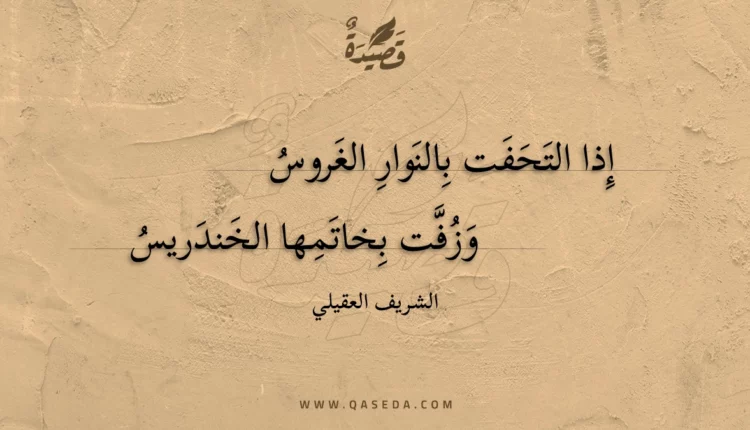 قَصِيدَةٌ
إِذا التَحَفَت بِالنَوارِ الغَروسُ
وَزُفَّت بِخاتَمِها الخَندَريسُ
الشريف العقيلي
WWW.QASEDA.COM